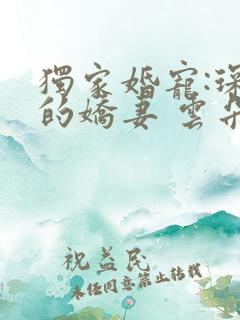 獨家婚寵:
的嬌妻 雲
祝益民
未經同意禁止轉載